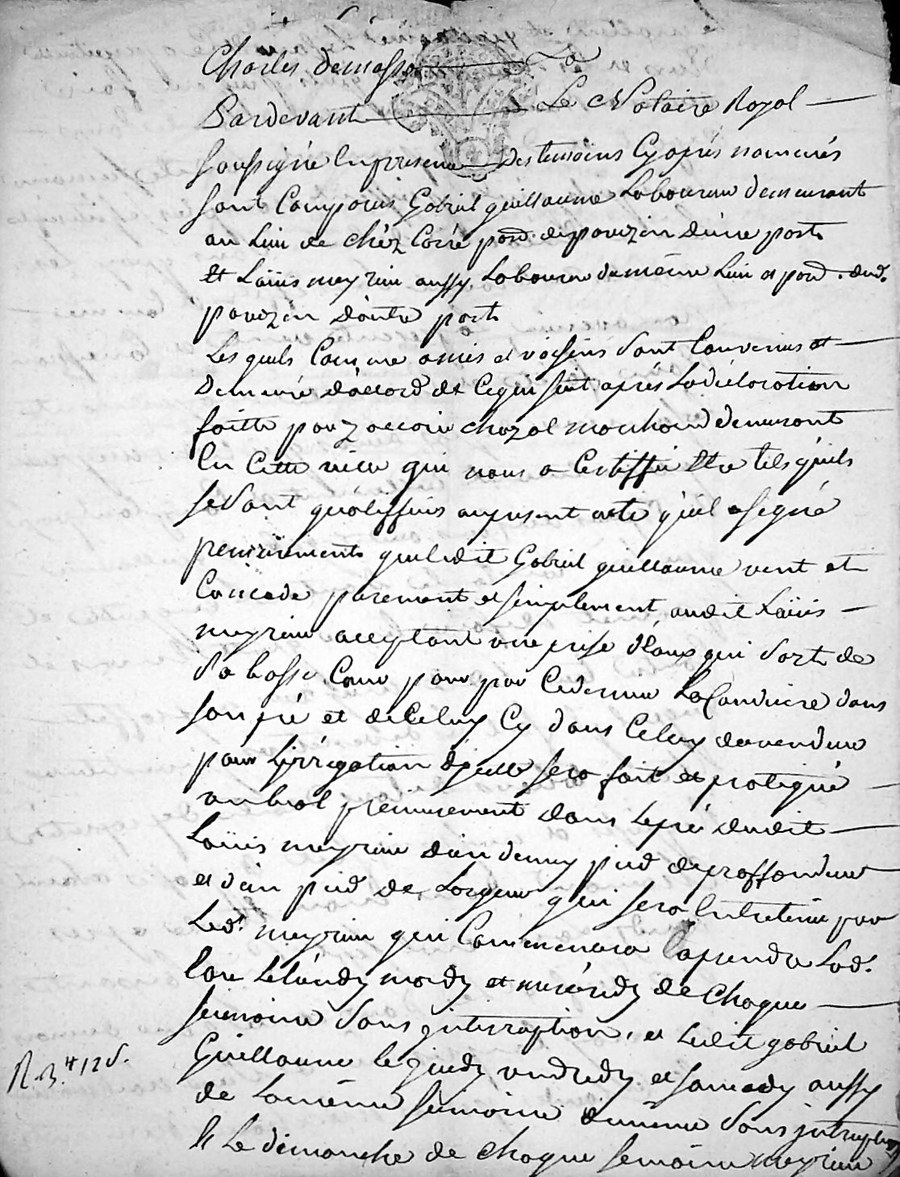 Charles demasso
Pardevant Le Notaire Royal
soussigné En presence des temoins Cyaprés nommés
sont Comparus Gabriel guillaume Laboureur demeurant
au Lieu de chéz Corré pared. de pauzin d'une part
Et Laüis meyrieu aussy Laboureur du même Lieu et par. dud.
pauzin d'autre part
Les quels Comme amis et voissins sont Convenus et
Demeuré d'accord de Ce qui suit aprés La déclaration
faitte par chazal marchand demeurant
En Cette qui nous a Certiffié Etre tels qu'ils
se sont qualiffiés au present acte qu'il a signé
premierement que ledit Gabriel guillaume vent et
Concede purement et simplement audit Laüis
meyrieu acceptant une prise d'Eaux qui sort de
sa basse Cour pour par Ce dernier La Conduire dans
son pré et de Celuy Cy dans Celuy du vendeur
pour L'irrigation d'Iceux sera fait et pratiqué
un béal premierement dans Le pré dudit
Laüis meyrieu d'un demy pied de proffondeur
et d'un pied de Largeur qui sera Entretenu par
Led. meyrieu qui Commencera a prendre Lad.
Eau Le Lundy mardy et mécrédy de chaque
semaine sans interruption, et Ledit gabriel
Guillaume Le jeudy vendredy et samedy aussy
de La même semaine de même sans interruption
R. 3# 12 s.
Et Le dimanche de chaque semaine meyrieu